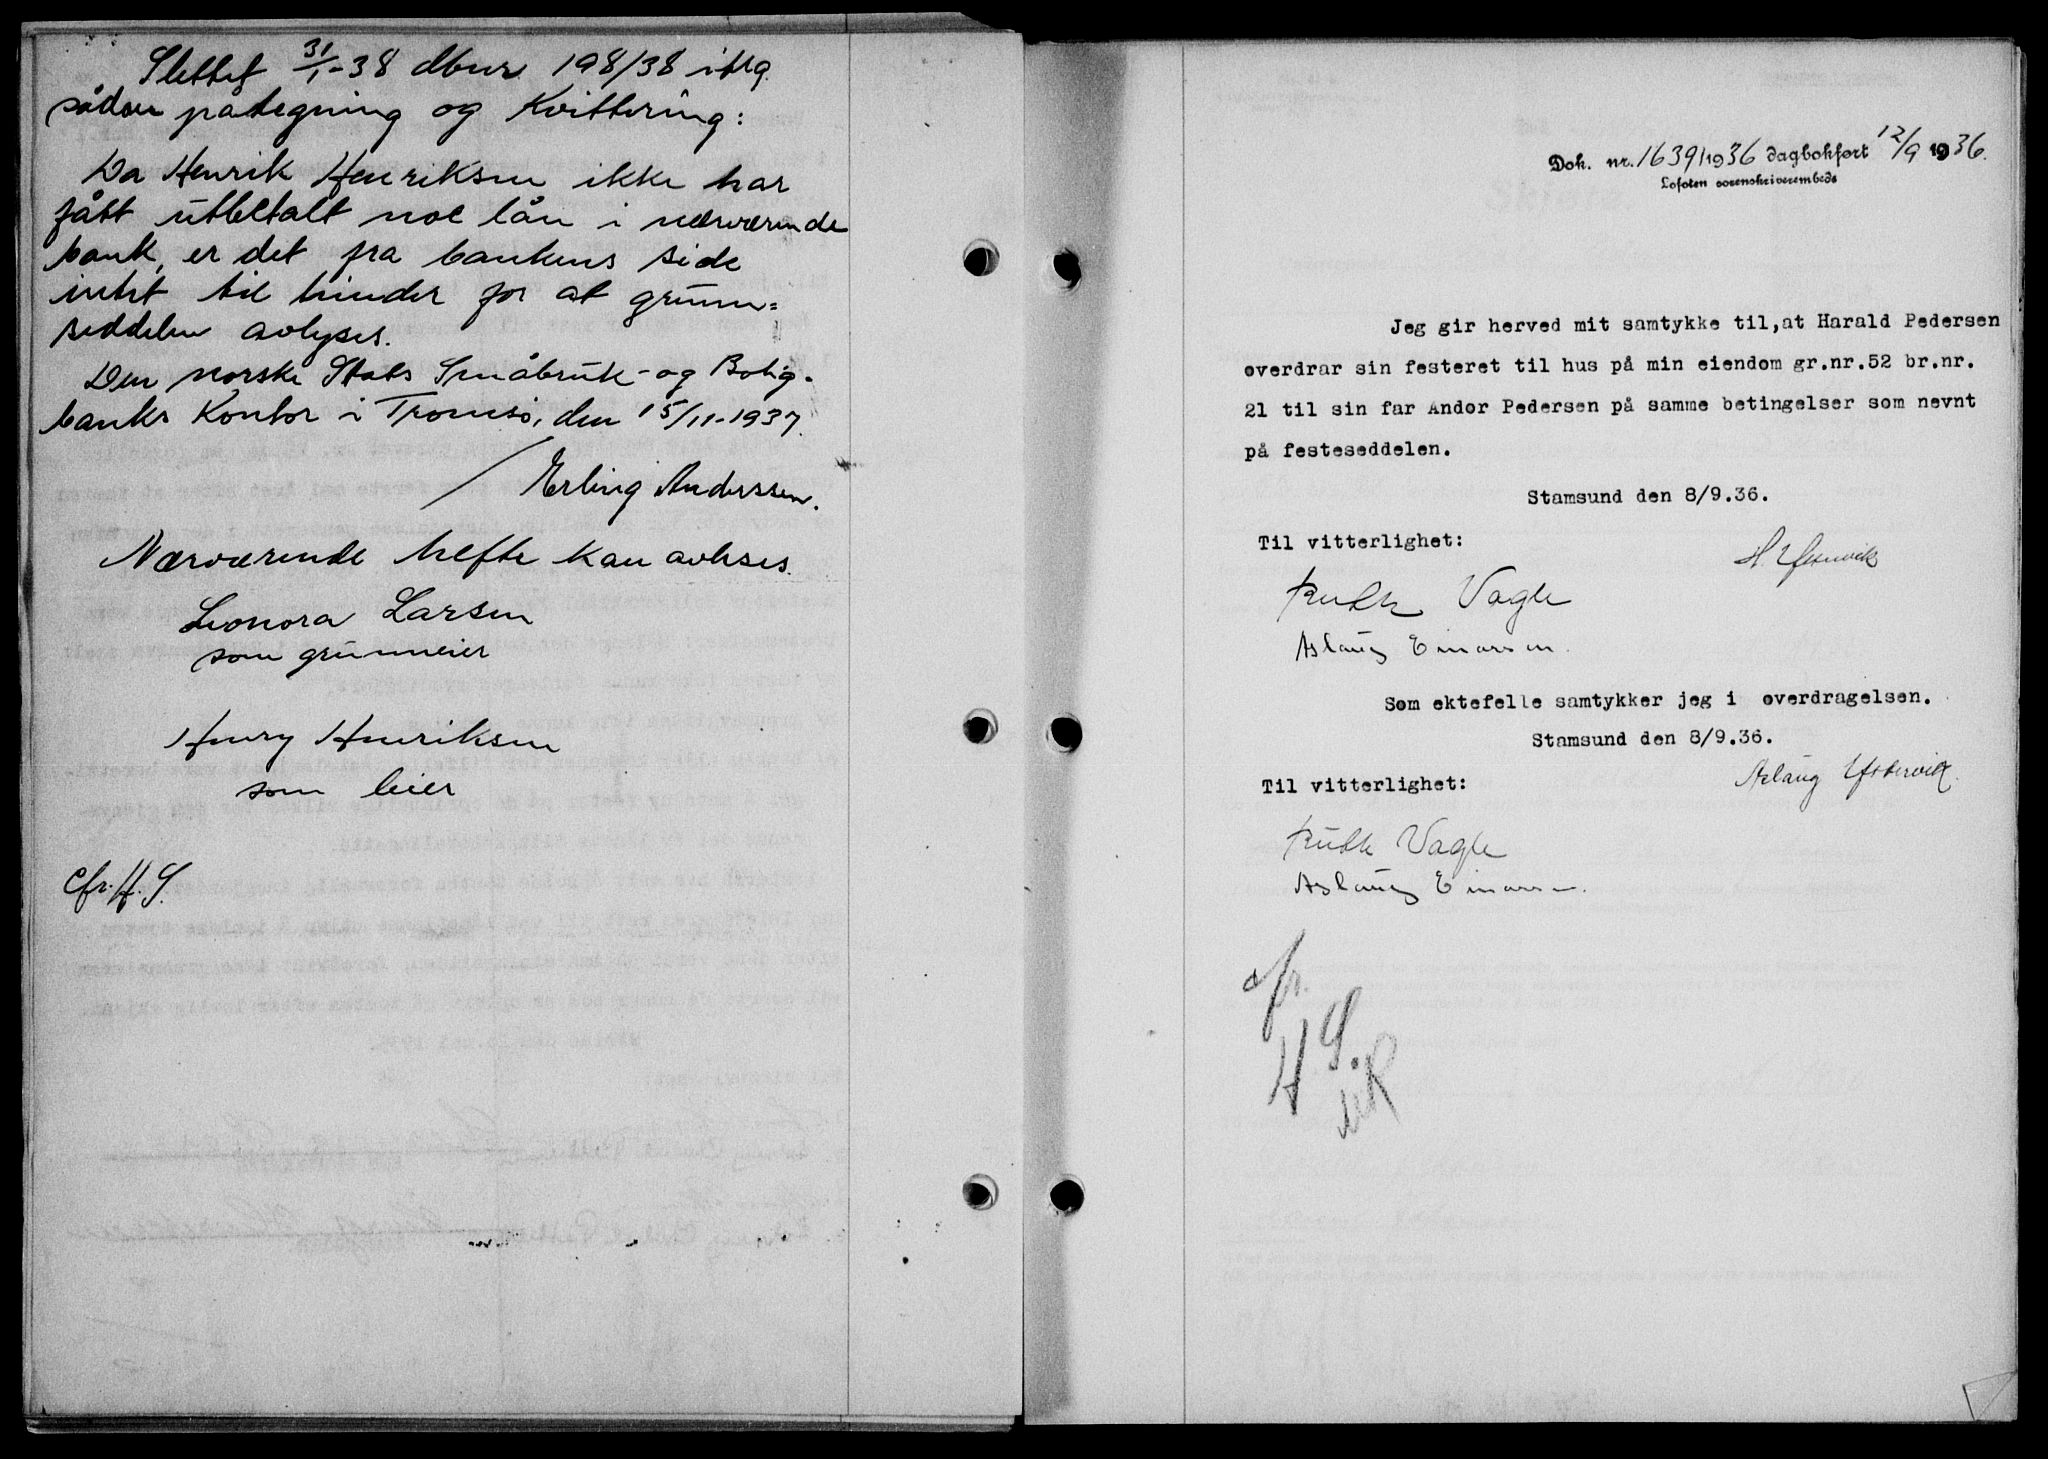 Slettet 31/1-38 dbnr 198/38 iflg.
sådan påtegning og Kvittering:
Da Henrik Henriksen ikke har
fått utbetalt noe lån i nærværende
bank, er det fra bankens side
intet til hinder for at grunn=
seddelen avlyses.
Den norske Stats Småbruk- og Bolig-
banks Kontor i Tromsø, den 15/11-1937.
Erling Anderssen.
Nærværende hefte kan avleses.
Leonora Larsen
som grunneier
Henry Henriksen
som leier
cfr. H. S.
Dok. nr. 1639/1936 dagbokført 12/9 1936.
Lofoten sorenskriverembede
Jeg gir herved mit samtykke til, at Harald Pedersen
overdrar sin festeret til hus på min eiendom gr.nr.52 br.nr.
21 til sin far Andor Pedersen på samme betingelser som nevnt
på festeseddelen.
Stamsund den 8/9.36.
Til vitterlighet:
H. Ystervik
Ruth Vagle
Aslaug Einarsen.
Som ektefelle samtykker jeg i overdragelsen.
Stamsund den 8/9.36.
Aslaug Ystervik.
Til vitterlighet:
Ruth Vagle
Aslaug Einarsen.
cfr.
H S.